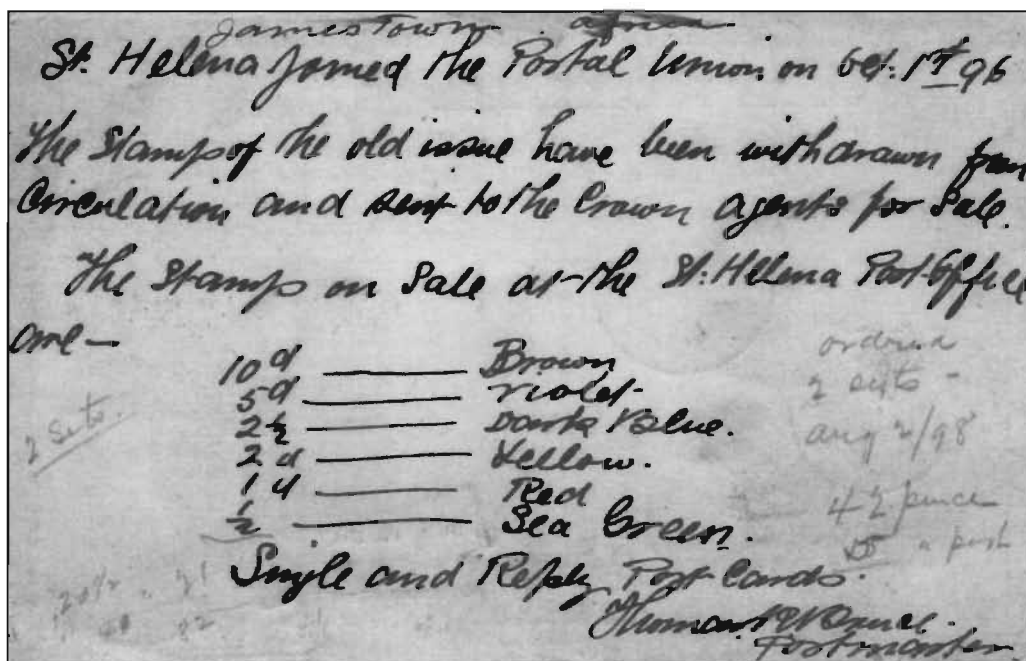 Jamestown africa
St. Helena Joined the Postal Union on Oct. 1st 96
The Stamps of the old issue have been withdrawn from
Circulation and sent to the Crown agents for Sale.
The Stamps on Sale at the St. Helena Post Office
are—
10d — Brown
5d — Violet
2½ — Dark Blue.
2d — Yellow.
1d — Red
½ — Sea Green.
Single and Reply Post Cards.
Thomas
Postmaster.
2 Sets.
ordered
2 sets -
aug 2/98
42 pence